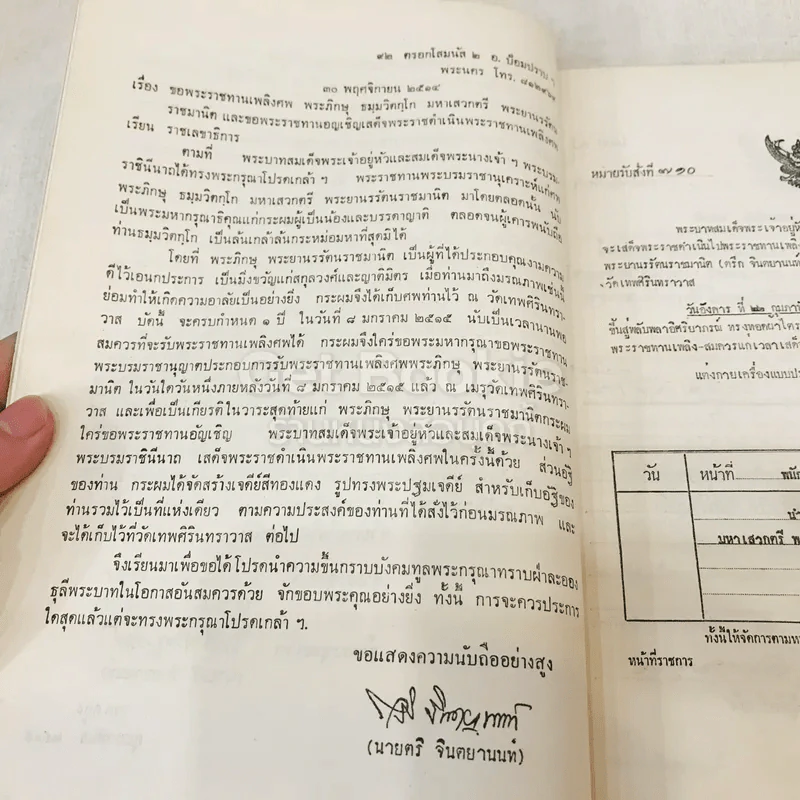 ๙๒ ตรอกโสมนัส ๒ อ. ป้อมปราบ ฯ
พระนคร โทร.
๓๐ พฤศจิกายน ๒๕๑๔
เรื่อง ขอพระราชทานเพลิงศพ พระภิกษุ ธมฺมวิตกฺโก มหาเสวกตรี พระยานรรัตน
ราชมานิต และขอพระราชทานอญเชิญเสด็จพระราชดำเนินพระราชทานเพลิงศพ
เรียน ราชเลขาธิการ
ตามที่ พระบาทสมเด็จพระเจ้าอยู่หัวและสมเด็จพระนางเจ้า ฯ พระบรม
ราชินีนาถได้ทรงพระกรุณาโปรดเกล้า ฯ พระราชทานพระบรมราชานุเคราะห์แก่ศพ
พระภิกษุ ธมฺมวิตกฺโก มหาเสวกตรี พระยานรรัตนราชมานิต มาโดยตลอดนั้น นับ
เป็นพระมหากรุณาธิคุณแก่กระผมผู้เป็นน้องและบรรดาญาติ ตลอดจนผู้เคารพนับถือ
ท่านธมฺมวิตกฺโก เป็นล้นเกล้าล้นกระหม่อมหาที่สุดมิได้
โดยที่ พระภิกษุ พระยานรรัตนราชมานิต เป็นผู้ที่ได้ประกอบคุณงามความ
ดีไว้เอนกประการ เป็นมิ่งขวัญแก่สกุลวงศ์และญาติมิตร เมื่อท่านมาถึงมรณภาพเช่นนี้
ย่อมทำให้เกิดความอาลัยเป็นอย่างยิ่ง กระผมจึงได้เก็บศพท่านไว้ ณ วัดเทพศิรินทรา-
วาส บัดนี้ จะครบกำหนด ๑ ปี ในวันที่ ๘ มกราคม ๒๕๑๕ นับเป็นเวลานานพอ
สมควรที่จะรับพระราชทานเพลิงศพได้ กระผมจึงใคร่ขอพระมหากรุณาขอพระราชทาน
พระบรมราชานุญาตประกอบการรับพระราชทานเพลิงศพพระภิกษุ พระยานรรัตนราช-
มานิต ในวันใดวันหนึ่งภายหลังวันที่ ๘ มกราคม ๒๕๑๕ แล้ว ณ เมรุวัดเทพศิรินทรา-
วาส และเพื่อเป็นเกียรติในวาระสุดท้ายแก่ พระภิกษุ พระยานรรัตนราชมานิตกระผม
ใคร่ขอพระราชทานอัญเชิญ พระบาทสมเด็จพระเจ้าอยู่หัวและสมเด็จพระนางเจ้า ฯ
พระบรมราชินีนาถ เสด็จพระราชดำเนินพระราชทานเพลิงศพในครั้งนี้ด้วย ส่วนอัฐิ
ของท่าน กระผมได้จัดสร้างเจดีย์สีทองแดง รูปทรงพระปฐมเจดีย์ สำหรับเก็บอัฐิของ
ท่านรวมไว้เป็นที่แห่งเดียว ตามความประสงค์ของท่านที่ได้สั่งไว้ก่อนมรณภาพ และ
จะได้เก็บไว้ที่วัดเทพศิรินทราวาส ต่อไป
จึงเรียนมาเพื่อขอได้โปรดนำความขึ้นกราบบังคมทูลพระกรุณาทราบฝ่าละออง
ธุลีพระบาทในโอกาสอันสมควรด้วย จักขอบพระคุณอย่างยิ่ง ทั้งนี้ การจะควรประการ
ใดสุดแล้วแต่จะทรงพระกรุณาโปรดเกล้า ฯ.
ขอแสดงความนับถืออย่างสูง
(นายตริ จินตยานนท์)
หมายรับสั่งที่ ๗๑๐
พระบาทสมเด็จพระเจ้าอยู่หั
จะเสด็จพระราชดำเนินไปพระราชทานเพลิง
พระยานรรัตนราชมานิต (ตรึก จินตยานนท์
วัดเทพศิรินทราวาส
วันอังคาร ที่ ๒๒ กุมภาพั
ขึ้นสู่พลับพลาอิศริยาภรณ์ ทรงทอดผ้าไตร
พระราชทานเพลิง-สมควรแก่เวลาเสด็
แต่งกายเครื่องแบบป
วัน หน้าที่ พนัก
นำ
มหาเสวกตรี พ
ทั้งนี้ให้จัดการตามห
หน้าที่ราชการ